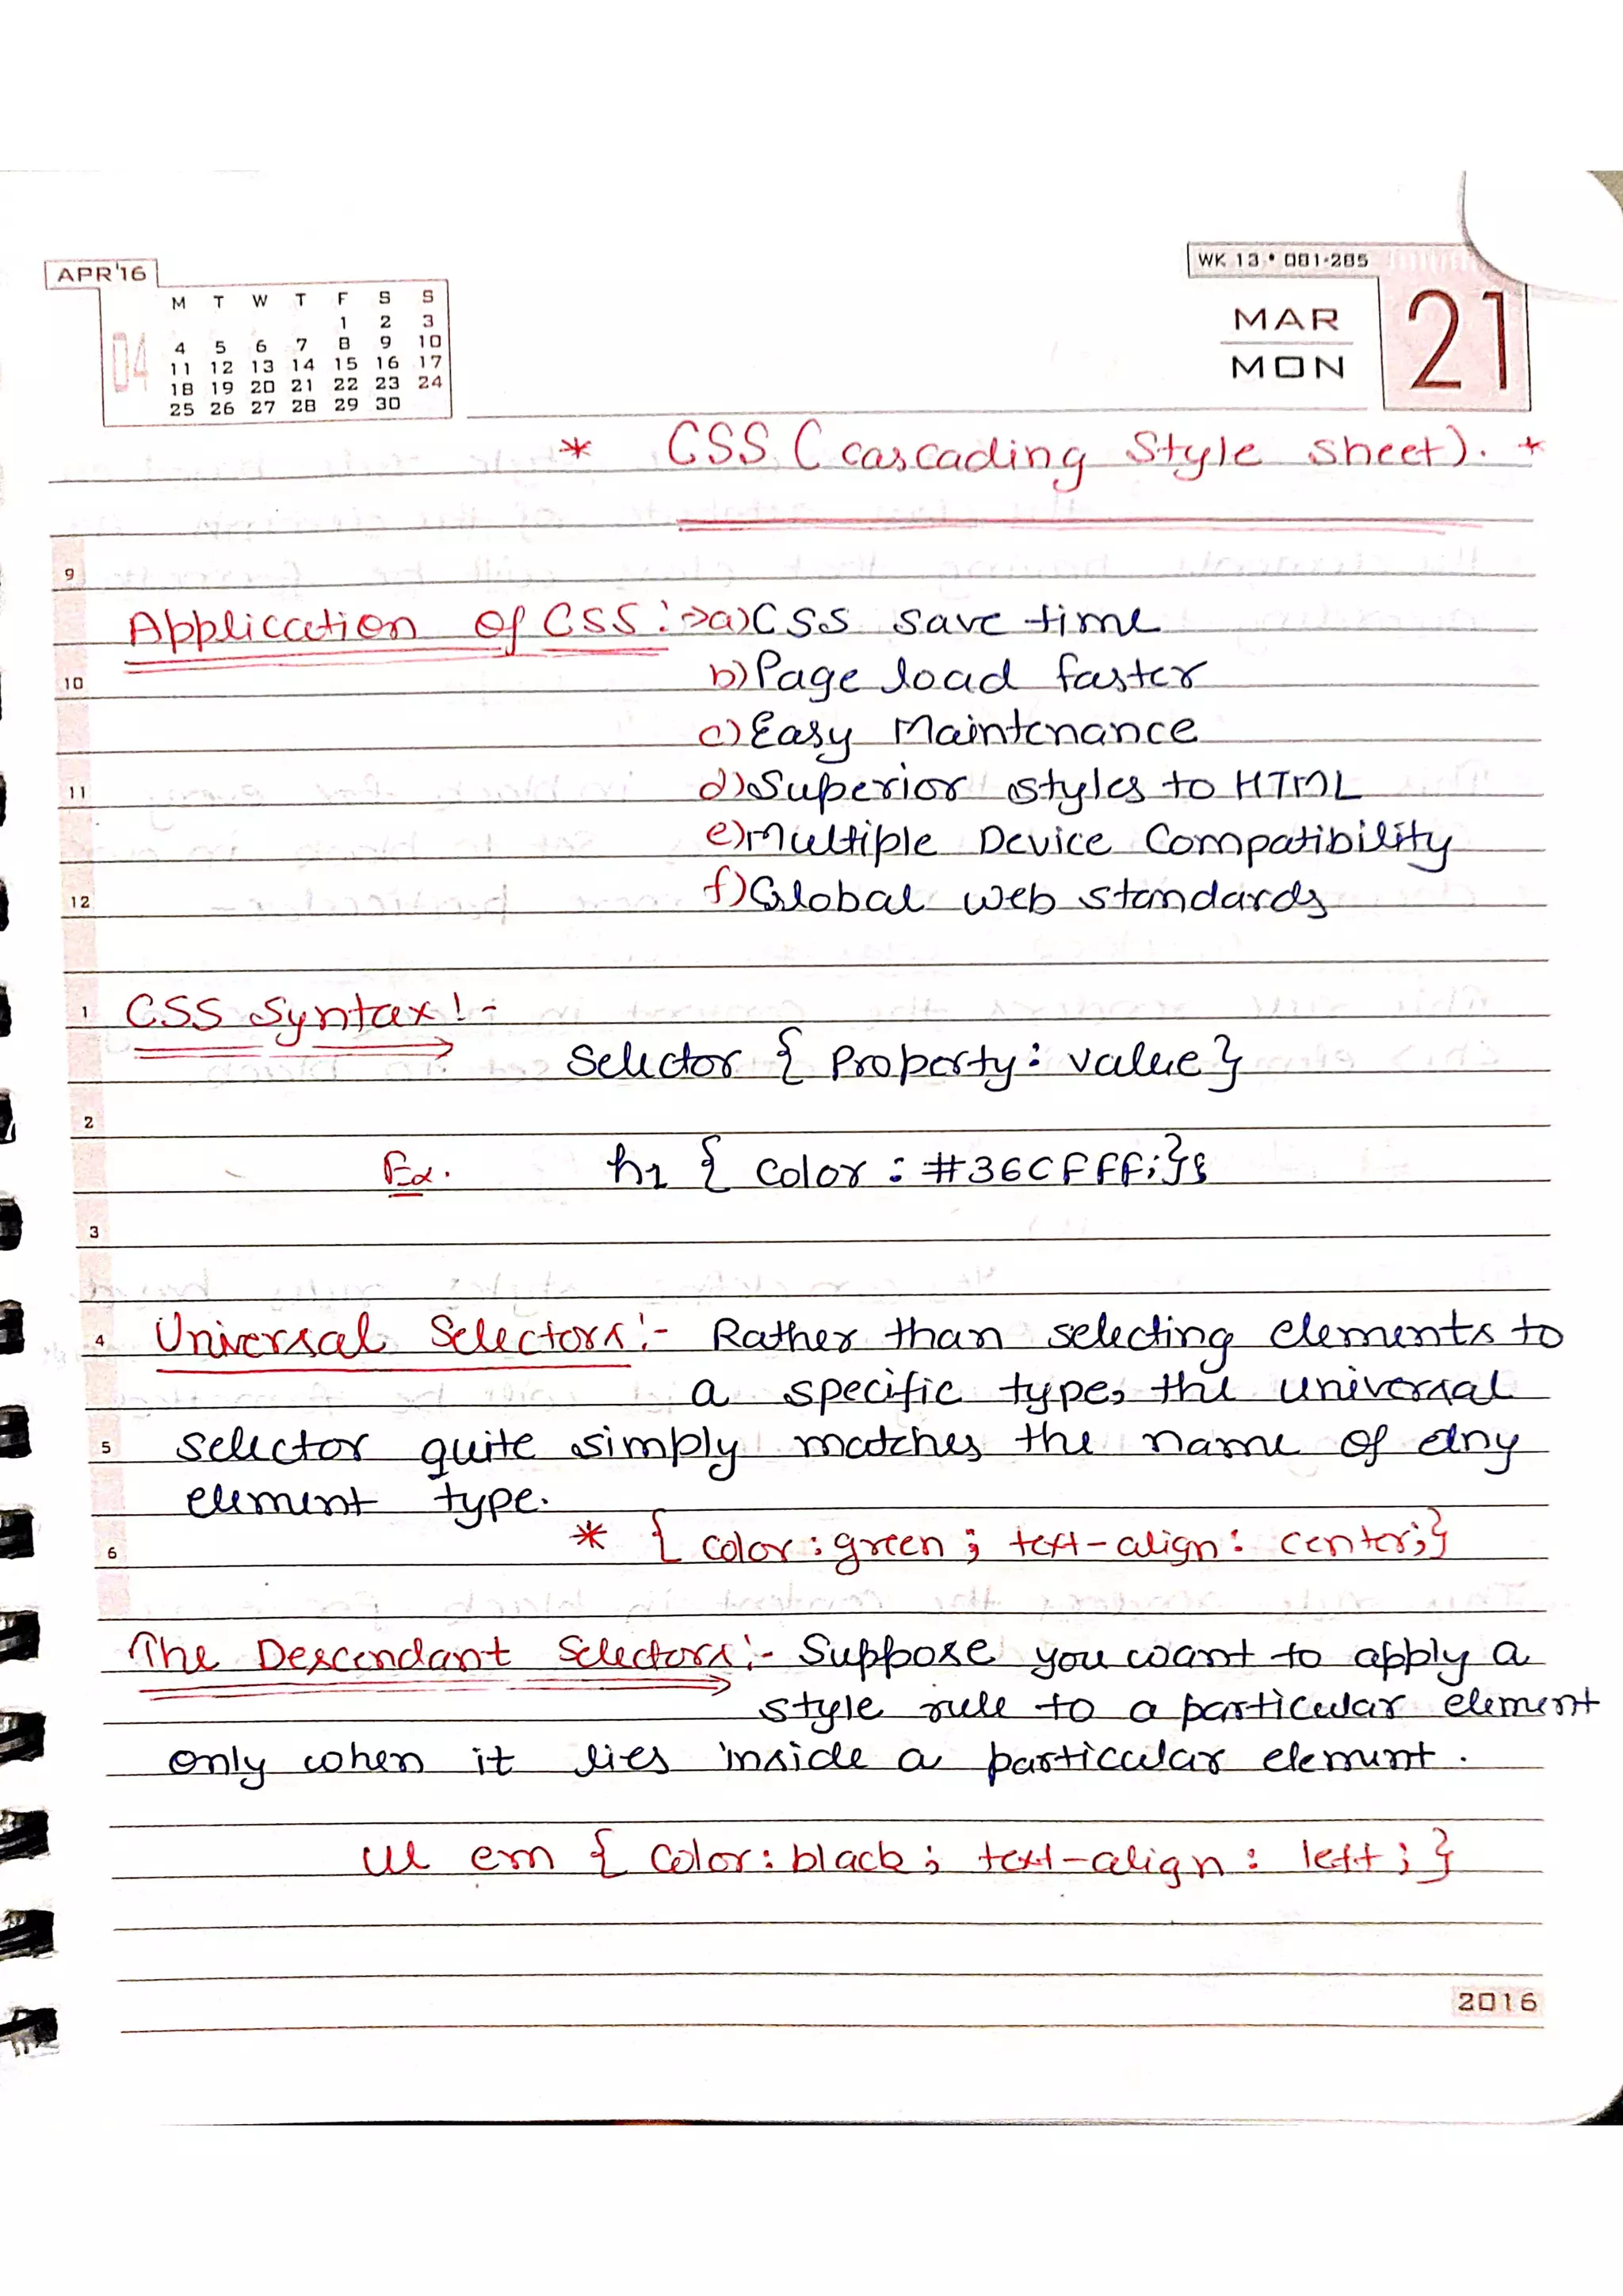 APR'16
M T W T F S S
1 2 3
4 5 6 7 8 9 10
11 12 13 14 15 16 17
18 19 20 21 22 23 24
25 26 27 28 29 30
04
WK 13 • 081-285
MAR
MON
21
* CSS (cascading Style sheet). *
9
Application of CSS :->a) CSS save time
10 b) Page load faster
c) Easy Maintenance
11 d) Superior styles to HTML
e) Multiple Device Compatibility
12 f) Global web standards
1 CSS Syntax! -
Selector { Property: value}
2
Ex. h1 { color : #36CFFF;}
3
4 Universal Selectors:- Rather than selecting elements to
a specific type, the universal
5 selector quite simply matches the name of any
element type.
6 * { color : green ; text-align : center;}
The Descendant Selectors:- Suppose you want to apply a
style rule to a particular element
only when it lies inside a particular element.
ul em { color: black; text-align : left; }
2016